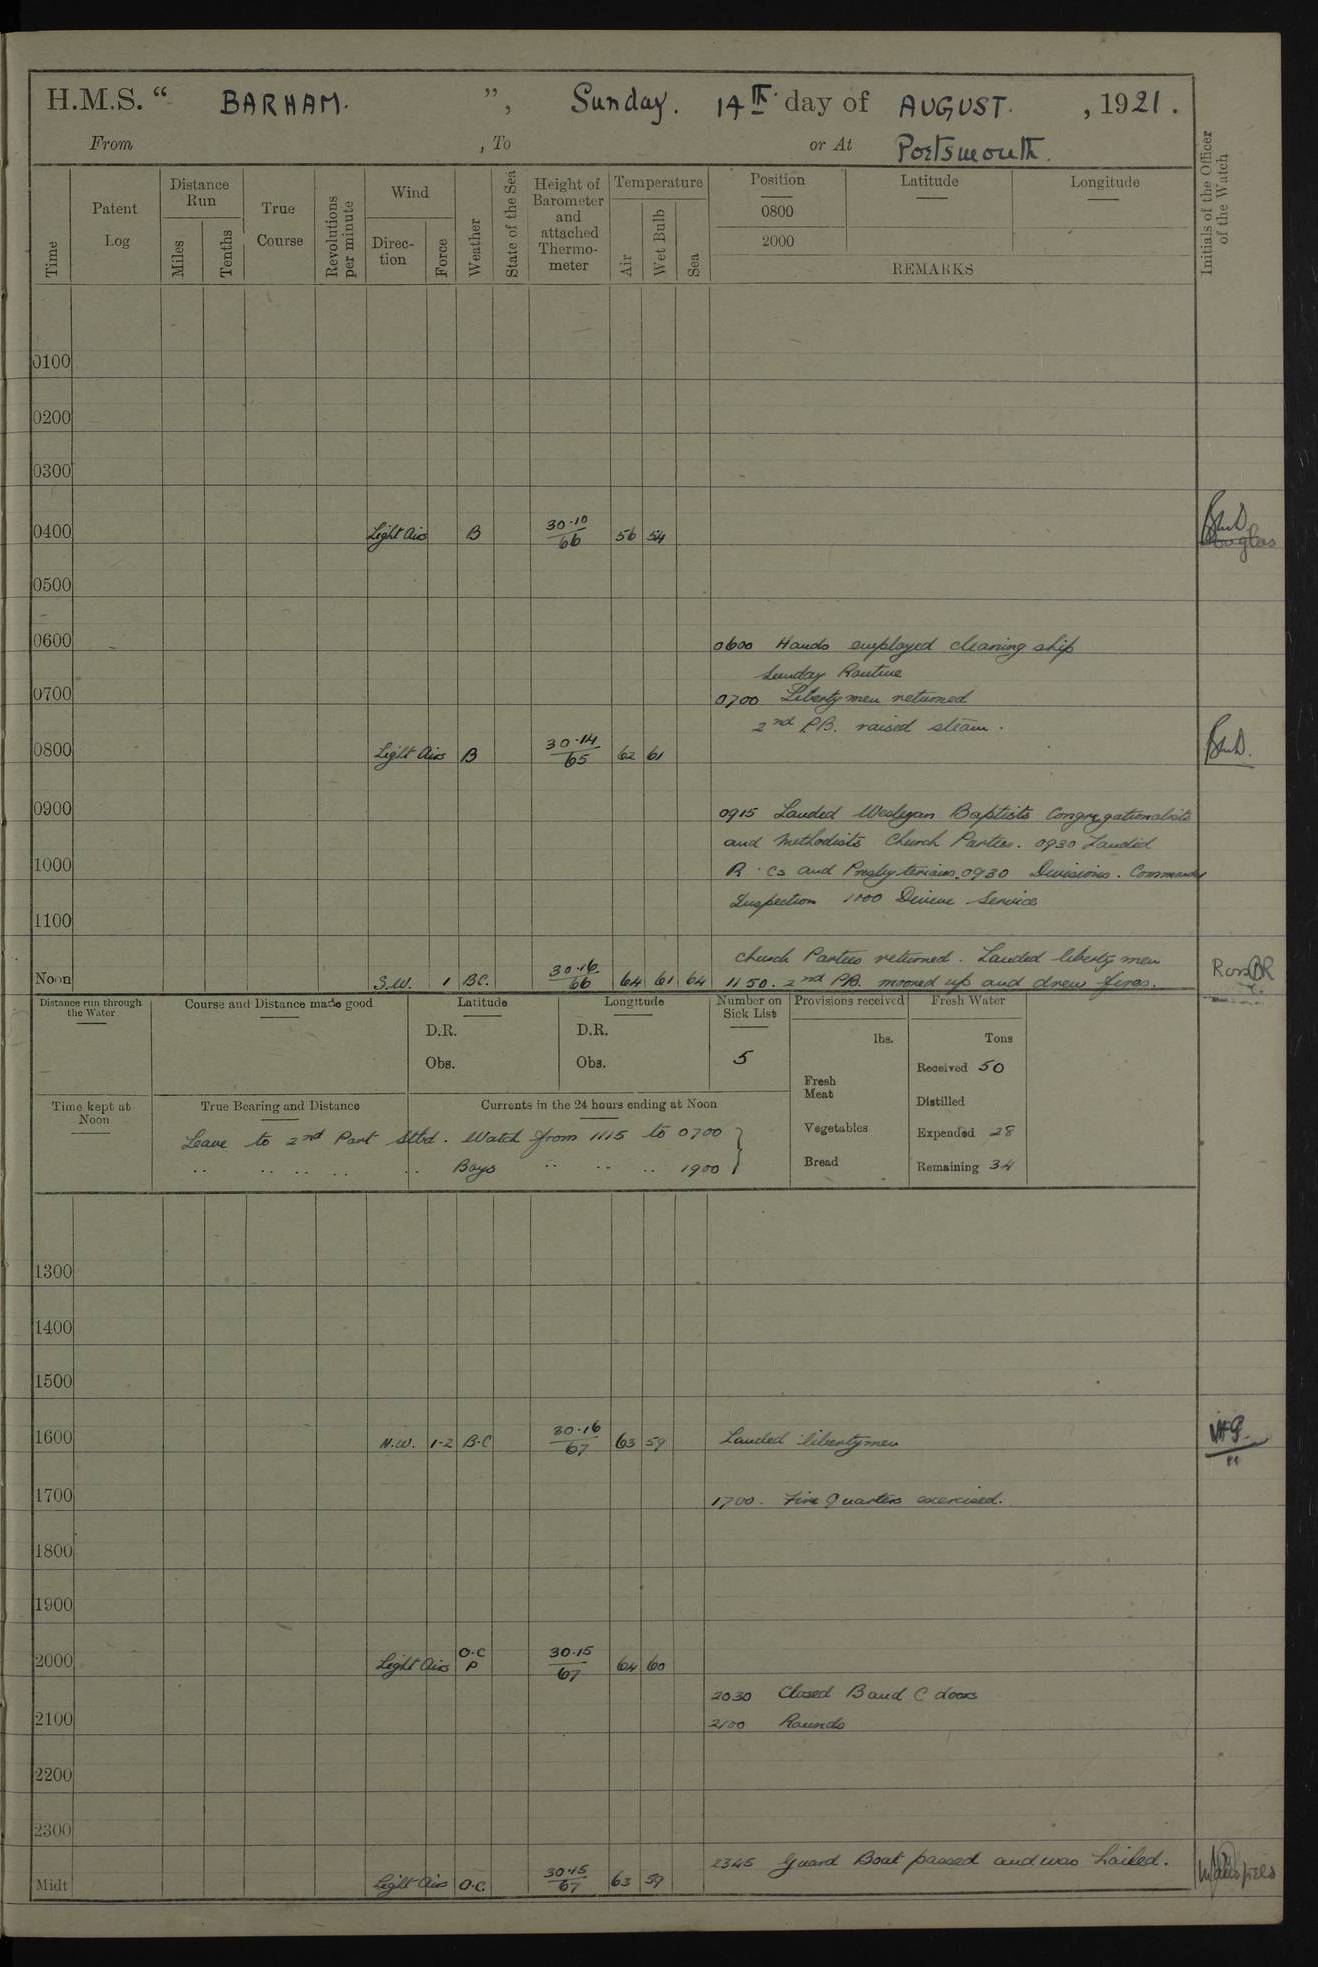 H.M.S. “ BARHAM. ”, Sunday. 14th day of AUGUST. , 1921.
From , To or At Portsmouth.
Time
Patent Log
Distance Run
Miles
Tenths
True Course
Revolutions per minute
Wind
Direc-tion
Force
Weather
State of the Sea
Height of Barometer and attached Thermo-meter
Temperature
Air
Wet Bulb
Sea
Position
0800
2000
Latitude
Longitude
REMARKS
Initials of the Officer of the Watch
0100
0200
0300
0400 Light Airs B 30.10/66 56 54
0500
0600 0600 Hands employed cleaning ship
Sunday Routine
0700 0700 Liberty men returned
2nd P.B. raised steam.
0800 Light Airs B 30.14/65 62 61
0900 0915 Landed Wesleyan Baptists Congregationalists
and Methodists Church Parties. 0930 Landed
1000 R.Cs and Presbyterians. 0930 Divisions. Commander
Inspection 1000 Divine Service
1100
Church Parties returned. Landed liberty men
Noon S.W. 1 B.C. 30.16/66 64 61 64 1150. 2nd P.B. moored up and drew fires.
Distance run through the Water
Course and Distance made good
Latitude
D.R.
Obs.
Longitude
D.R.
Obs.
Number on Sick List
5
Provisions received
lbs.
Fresh Meat
Vegetables
Bread
Fresh Water
Tons
Received 50
Distilled
Expended 28
Remaining 34
Time kept at Noon
True Bearing and Distance
Currents in the 24 hours ending at Noon
Leave to 2nd Part Stbd. Watch from 1115 to 0700 }
.. .. .. .. .. Boys .. .. .. 1900 }
1300
1400
1500
1600 N.W. 1-2 B.C 30.16/67 63 59 Landed libertymen
1700 1700. Fire Quarters exercised.
1800
1900
2000 Light Airs O.C P 30.15/67 64 60
2030 Closed B and C doors
2100 2100 Rounds
2200
2300
2345 Guard Boat passed and was hailed.
Midt Light Airs O.C. 30.15/67 63 59